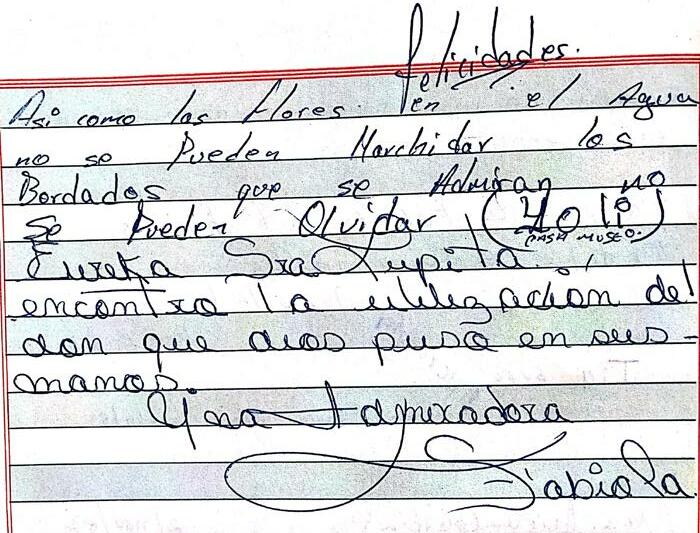 Felicidades.
Así como las flores en el Agua
no se Pueden Marchidar los
Bordados que se Admiran no
se Pueden Olvidar
CASA MUSEO.
Eureka Sra Lupita.
encontro la utilización del
don que dios puso en sus-
manos.
Una Admiradora
Fabiola.